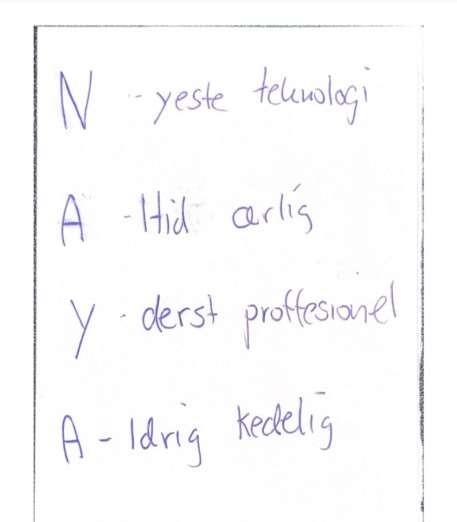 N - yeste teknologi
A - ltid ærlig
Y - derst proffesionel
A - ldrig kedelig